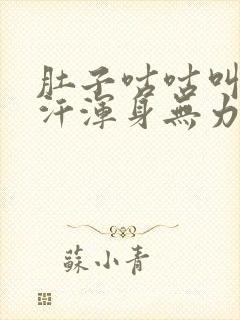 肚子咕咕叫
汗渾身無力
蘇小青